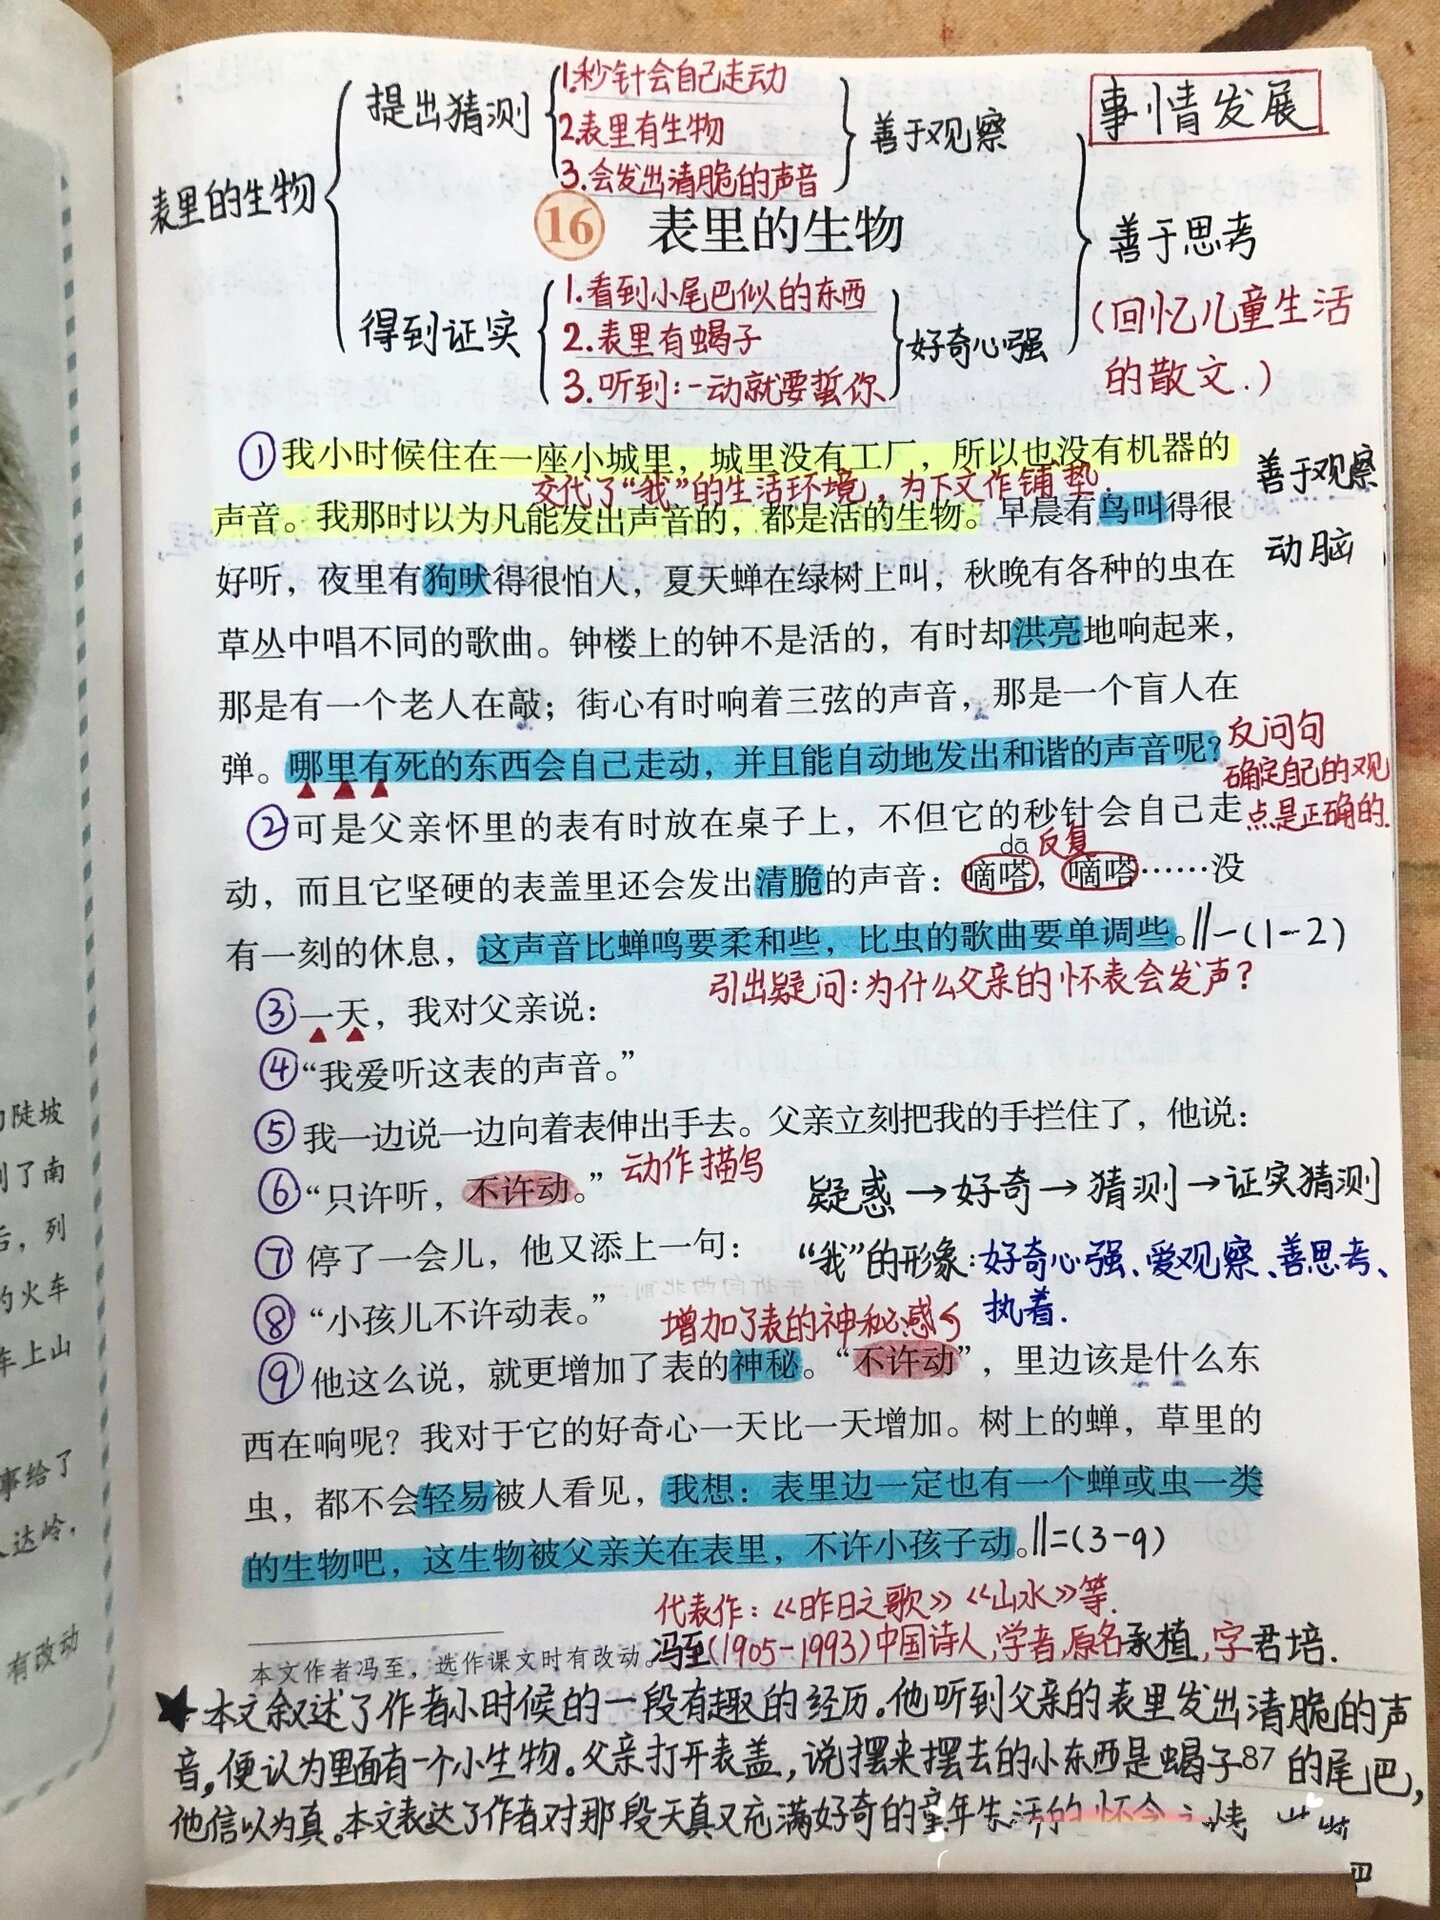 事情发展
提出猜测
1.秒针会自己走动
2.表里有生物
3.会发出清脆的声音
善于观察
表里的生物
16 表里的生物
善于思考
得到证实
1.看到小尾巴似的东西
2.表里有蝎子
3.听到:一动就要蜇你
好奇心强
(回忆儿童生活
的散文.)
①我小时候住在一座小城里，城里没有工厂，所以也没有机器的
交代了“我”的生活环境，为下文作铺垫.
声音。我那时以为凡能发出声音的，都是活的生物。早晨有鸟叫得很
善于观察
动脑
好听，夜里有狗吠得很怕人，夏天蝉在绿树上叫，秋晚有各种的虫在
草丛中唱不同的歌曲。钟楼上的钟不是活的，有时却洪亮地响起来，
那是有一个老人在敲；街心有时响着三弦的声音，那是一个盲人在
弹。哪里有死的东西会自己走动，并且能自动地发出和谐的声音呢？
反问句
确定自己的观
点是正确的.
②可是父亲怀里的表有时放在桌子上，不但它的秒针会自己走
dā 反复
动，而且它坚硬的表盖里还会发出清脆的声音：嘀嗒，嘀嗒……没
有一刻的休息，这声音比蝉鸣要柔和些，比虫的歌曲要单调些。‖一(1-2)
引出疑问:为什么父亲的怀表会发声?
③一天，我对父亲说：
④“我爱听这表的声音。”
⑤我一边说一边向着表伸出手去。父亲立刻把我的手拦住了，他说：
⑥“只许听，不许动。”
动作描写
疑惑→好奇→猜测→证实猜测
⑦停了一会儿，他又添上一句：
“我”的形象:好奇心强、爱观察、善思考、
执着.
⑧“小孩儿不许动表。”
增加了表的神秘感
⑨他这么说，就更增加了表的神秘。“不许动”，里边该是什么东
西在响呢？我对于它的好奇心一天比一天增加。树上的蝉，草里的
虫，都不会轻易被人看见，我想：表里边一定也有一个蝉或虫一类
的生物吧，这生物被父亲关在表里，不许小孩子动。‖二(3-9)
代表作:《昨日之歌》《山水》等.
本文作者冯至，选作课文时有改动。
冯至(1905-1993)中国诗人,学者,原名承植,字君培.
★本文叙述了作者小时候的一段有趣的经历。他听到父亲的表里发出清脆的声
音,便认为里面有一个小生物。父亲打开表盖,说摆来摆去的小东西是蝎子的尾巴,
87
他信以为真。本文表达了作者对那段天真又充满好奇的童年生活的怀念之情
陡坡
到了南
后，列
的火车
车上山
事给了
达岭，
有改动